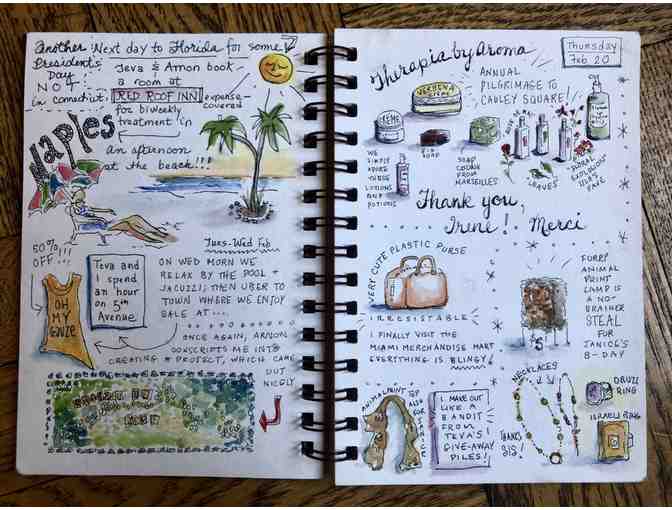 Another Next day to Florida for some
Presidents'
Day!
NOT
in connecticut.
Teva & Amon book
a room at
RED ROOF INN
expense-
covered
for biweekly
treatment in
Naples
An afternoon
at the beach!!!
50%
OFF...!
OH
MY
GAUZE
Teva and
I spend
an hour
on 5th
Avenue.
Tues-Wed Feb
ON WED MORN WE
RELAX BY THE POOL +
JACUZZI; THEN UBER TO
TOWN WHERE WE ENJOY
SALE AT...
ONCE AGAIN, ARNON
CONSCRIPTS ME INTO
CREATING A PROJECT, WHICH CAME
OUT
NICELY
Therapia by Aroma
Thursday
Feb 20
VERBENA
ANNUAL
PILGRIMAGE TO
CAULEY SQUARE!
CREME
WE
SIMPLY
ADORE
THESE
LOTIONS
AND
POTIONS
SOAP
SOAP
COOKIE
FROM
MARSEILLES
LEAVES
FLORAL
EXPLOSION
FAVE
Thank you,
Irene! Merci
VERY CUTE PLASTIC PURSE
IRRESISTABLE
I FINALLY VISIT THE
MIAMI MERCHANDISE MART
EVERYTHING IS BLINGY!
FURRY
ANIMAL
PRINT
LAMP IS
A NO-
BRAINER
STEAL
FOR
JANICE'S
B-DAY
$5
ANIMAL PRINT TOP
ALSO FOR JANICE
I MAKE OUT
LIKE A
BANDIT
FROM
TEVA'S
GIVE-AWAY
PILES!
NECKLACES
THANKS
SIS!
DRUZI
RING
ISRAELI RING